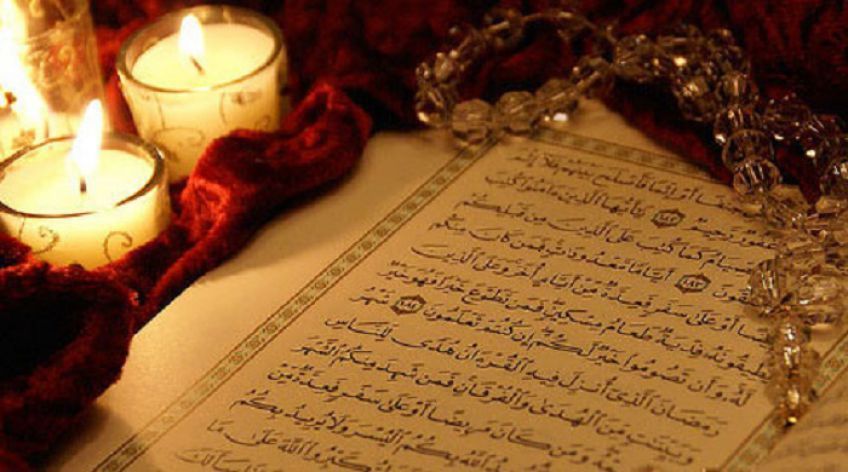 أَوْ إِثْمًا فَأَصْلَحَ بَيْنَهُمْ فَلَآ إِثْمَ
غَفُورٌ رَّحِيمٌ ١٨٢ يَٰٓأَيُّهَا ٱلَّذِينَ ءَامَنُوا۟ كُتِبَ
ٱلصِّيَامُ كَمَا كُتِبَ عَلَى ٱلَّذِينَ مِن قَبْلِكُمْ
تَتَّقُونَ ١٨٣ أَيَّامًا مَّعْدُودَٰتٍ فَمَن كَانَ مِنكُم
مَّرِيضًا أَوْ عَلَىٰ سَفَرٍ فَعِدَّةٌ مِّنْ أَيَّامٍ أُخَرَ وَعَلَى ٱلَّذِينَ
يُطِيقُونَهُۥ فِدْيَةٌ طَعَامُ مِسْكِينٍ فَمَن تَطَوَّعَ خَيْرًا فَهُوَ خَيْرٌ
لَّهُۥ وَأَن تَصُومُوا۟ خَيْرٌ لَّكُمْ إِن كُنتُمْ تَعْلَمُونَ ١٨٤ شَهْرُ
رَمَضَانَ ٱلَّذِىٓ أُنزِلَ فِيهِ ٱلْقُرْءَانُ هُدًى لِّلنَّاسِ
وَبَيِّنَٰتٍ مِّنَ ٱلْهُدَىٰ وَٱلْفُرْقَانِ فَمَن شَهِدَ مِنكُمُ ٱلشَّهْرَ
وَمَن كَانَ مَرِيضًا أَوْ عَلَىٰ سَفَرٍ فَعِدَّةٌ مِّنْ
ٱللَّهُ بِكُمُ ٱلْيُسْرَ وَلَا يُرِيدُ بِكُمُ
ٱللَّهَ عَلَىٰ مَا